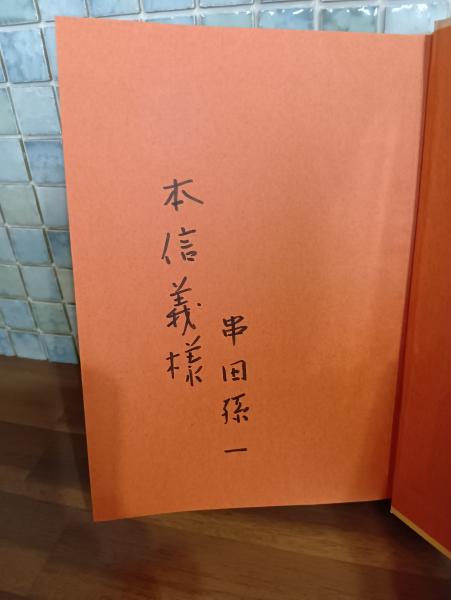 本信義様
串田孫一